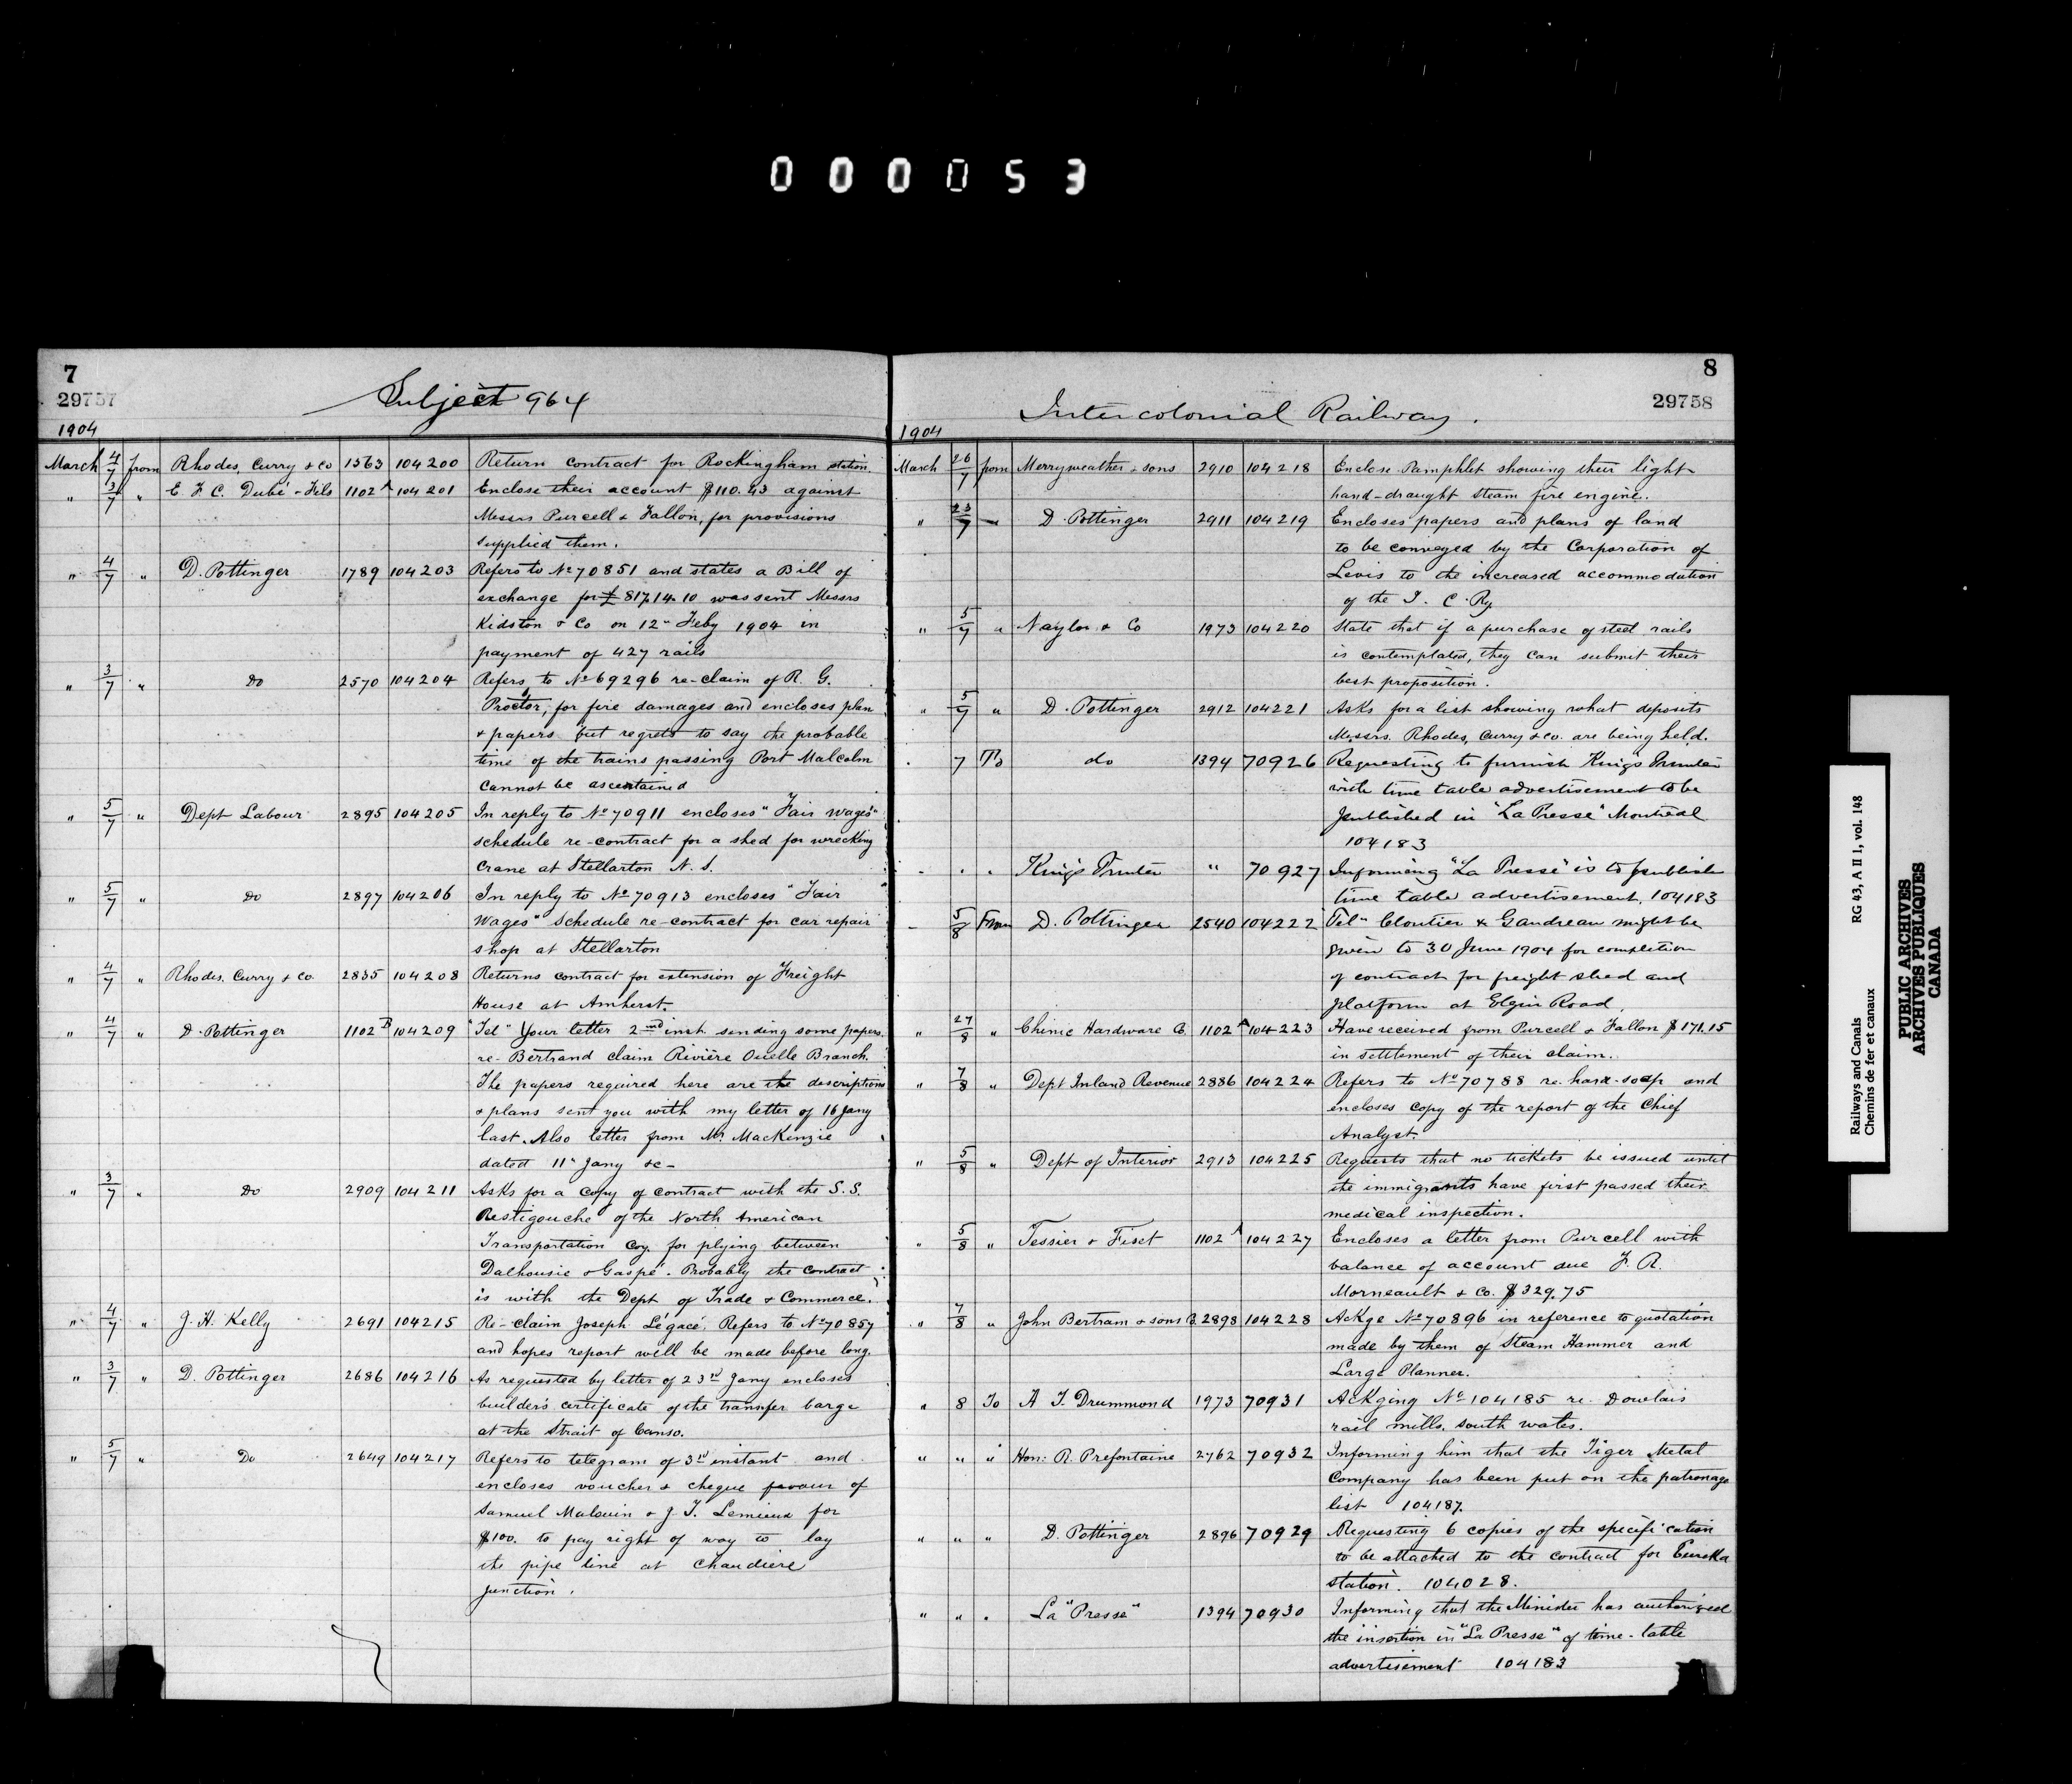 000053
7
29757
Subject 964
1904
March 4/7 from Rhodes, Curry & Co 1563 104200 Return contract for Rockingham station.
" 3/7 " E. F. C. Dubé - Fils 1102 A 104201 Enclose their account $110.43 against
Messrs Purcell & Fallon, for provisions
supplied them.
" 4/7 " D. Pottinger 1789 104203 Refers to No 70851 and states a Bill of
exchange for £ 817.14.10 was sent Messrs
Kidston & Co on 12" Feby 1904 in
payment of 427 rails
" 3/7 " Do 2570 104204 Refers to No 69296 re-claim of R. G.
Proctor, for fire damages and encloses plan
& papers but regrets to say the probable
time of the trains passing Port Malcolm
cannot be ascertained
" 5/7 " Dept Labour 2895 104205 In reply to No 70911 encloses "Fair Wages"
schedule re-contract for a shed for wrecking
Crane at Stellarton N. S.
" 5/7 " Do 2897 104206 In reply to No 70913 encloses "Fair
Wages" Schedule re-contract for car repair
shop at Stellarton
" 4/7 " Rhodes, Curry & Co. 2835 104208 Returns contract for extension of Freight
House at Amherst.
" 4/7 " D. Pottinger 1102 B 104209 "Tel" Your letter 2nd inst. sending some papers
re- Bertrand claim Rivière Ouelle Branch.
The papers required here are the descriptions
& plans sent you with my letter of 16 Jany
last. Also letter from Mr. MacKenzie
dated 11" Jany &c-
" 3/7 " Do 2909 104211 Asks for a copy of contract with the S.S.
Restigouche of the North American
Transportation Coy. for plying between
Dalhousie & Gaspé. Probably the contract
is with the Dept of Trade & Commerce.
" 4/7 " J. H. Kelly 2691 104215 Re-claim Joseph Légacé. Refers to No 70857
and hopes report will be made before long.
" 3/7 " D. Pottinger 2686 104216 As requested by letter of 23rd Jany encloses
builder's certificate of the transfer barge
at the Strait of Canso.
" 5/7 " Do 2649 104217 Refers to telegram of 3rd instant and
encloses voucher & cheque favour of
Samuel Malouin & J. T. Lemieux for
$100. to pay right of way to lay
the pipe line at Chaudiere
junction.
8
29758
Intercolonial Railway.
1904
March 26/7 from Merryweather & sons 2910 104218 Enclose Pamphlet showing their light
hand-draught steam fire engine.
" 23/7 " D. Pottinger 2911 104219 Encloses papers and plans of land
to be conveyed by the Corporation of
Levis to the increased accommodation
of the I. C. Ry.
" 5/7 " Naylor & Co 1973 104220 State that if a purchase of steel rails
is contemplated, they can submit their
best proposition.
" 5/7 " D. Pottinger 2912 104221 Asks for a list showing what deposits
Messrs. Rhodes, Curry & Co. are being held.
. 7 To do 1394 70926 Requesting to furnish King's Printer
with time table advertisement to be
published in "La Presse" Montreal
104183
. . . King's Printer " 70927 Informing "La Presse" is to publish
time table advertisement. 104183
- 5/8 From D. Pottinger 2540 104222 "Tel" Cloutier & Gaudreau might be
given to 30 June 1904 for completion
of contract for freight shed and
platform at Elgin Road.
" 27/8 " Chinic Hardware Co. 1102 A 104223 Have received from Purcell & Fallon $171.15
in settlement of their claim.
" 7/8 " Dept Inland Revenue 2886 104224 Refers to No 70788 re. hard-soap and
encloses copy of the report of the Chief
Analyst.
" 5/8 " Dept of Interior 2913 104225 Requests that no tickets be issued until
the immigrants have first passed their
medical inspection.
" 5/8 " Tessier & Fiset 1102 A 104227 Encloses a letter from Purcell with
balance of account due F. R.
Morneault & Co. $329.75
" 7/8 " John Bertram & sons Co. 2898 104228 Ackge No 70896 in reference to quotation
made by them of Steam Hammer and
Large Planner.
" 8 To A. T. Drummond 1973 70931 Ackging No 104185 re. Dowlais
rail mills. South Wales.
" " " Hon: R. Prefontaine 2762 70932 Informing him that the Tiger Metal
Company has been put on the patronage
list 104187.
" " " D. Pottinger 2896 70929 Requesting 6 copies of the specification
to be attached to the contract for Eureka
station. 104028.
" " " La "Presse" 1394 70930 Informing that the Minister has authorized
the insertion in "La Presse" of time-table
advertisement 104183
Railways and Canals RG 43, A II 1, vol. 148
Chemins de fer et canaux
PUBLIC ARCHIVES
ARCHIVES PUBLIQUES
CANADA